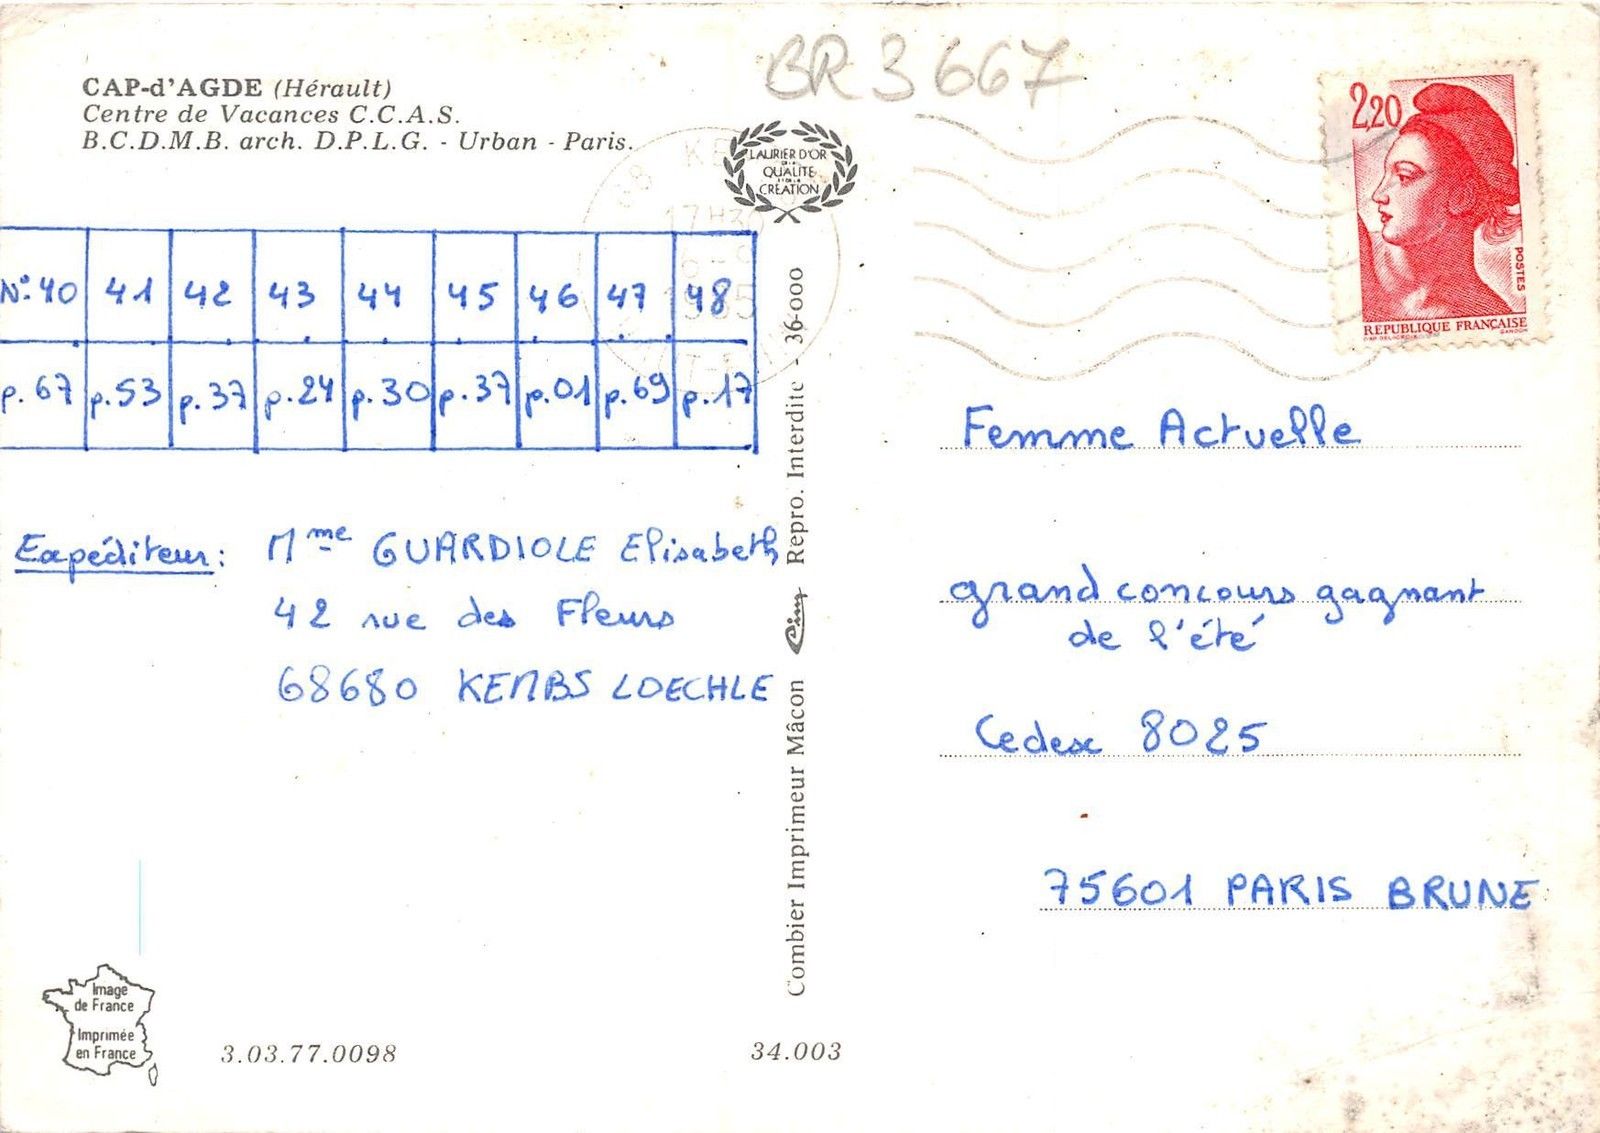 BR 3667
CAP-d'AGDE (Hérault)
Centre de Vacances C.C.A.S.
B.C.D.M.B. arch. D.P.L.G. - Urban - Paris.
LAURIER D'OR
DE LA
QUALITÉ
ET DE LA
CRÉATION
17H30
2,20
POSTES
REPUBLIQUE FRANÇAISE
N°.40 41 42 43 44 45 46 47 48
p.67 p.53 p.37 p.24 p.30 p.37 p.01 p.69 p.17
Expéditeur: Mme GUARDIOLE Elisabeth
42 rue des Fleurs
68680 KEMBS LOECHLE
Combier Imprimeur Mâcon Cim Repro. Interdite - 36-000
Femme Actuelle
grand concours gagnant
de l'été
Cedex 8025
75601 PARIS BRUNE
Image
de France
Imprimée
en France
3.03.77.0098
34.003